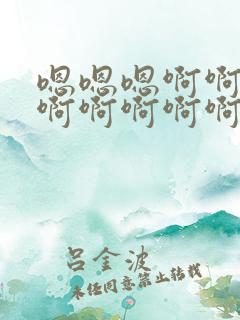 嗯嗯嗯啊啊
啊啊啊啊啊
吕金波
未经同意禁止转载